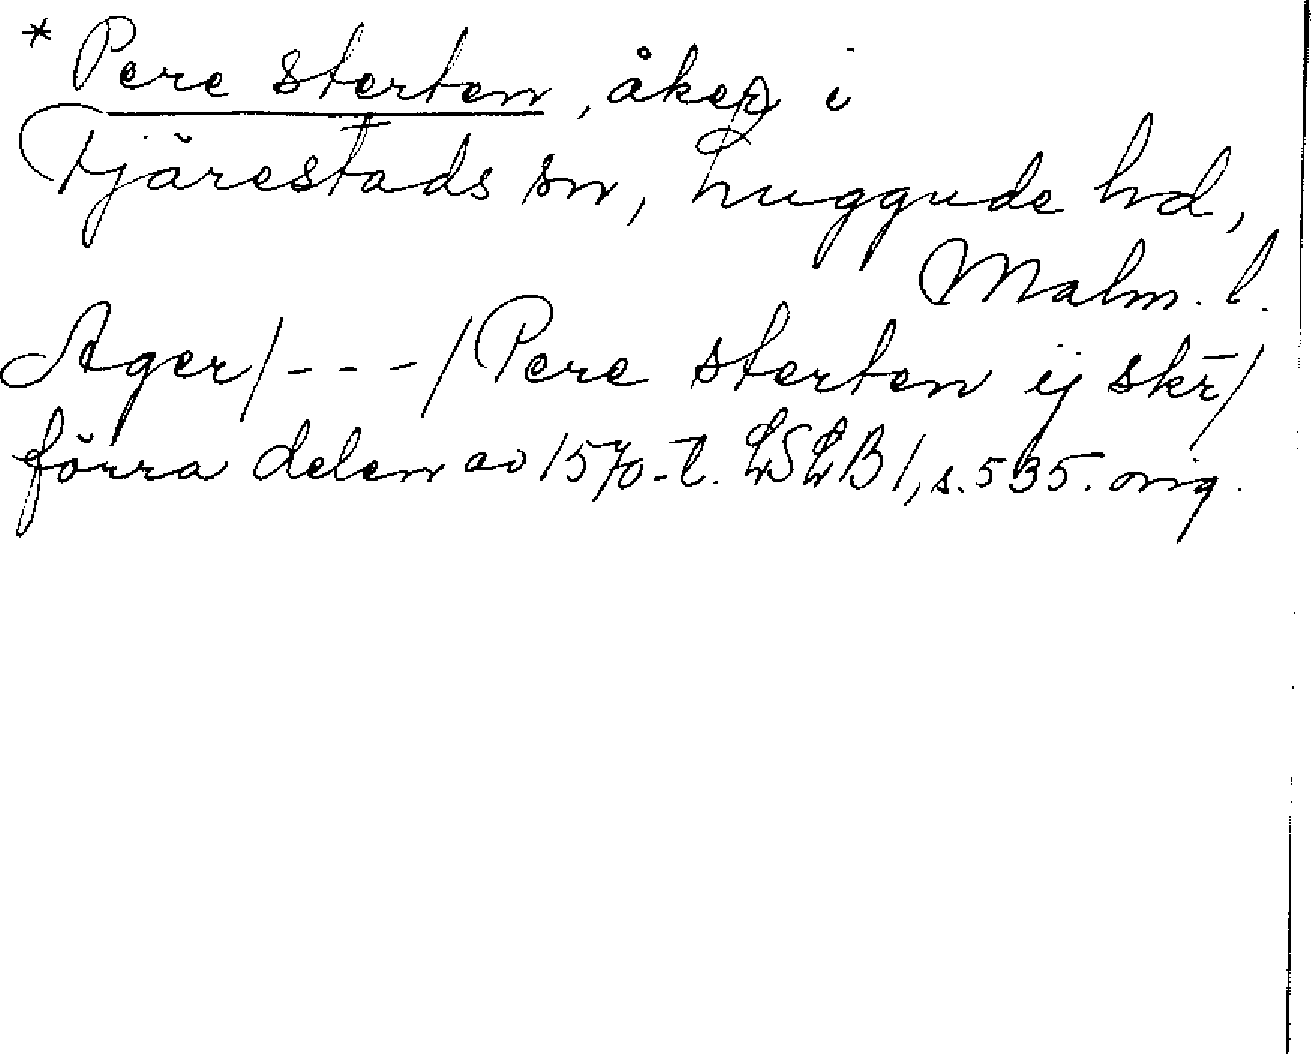 * Pere sterten, åker i
Tjärestads sn, Luggude hd,
Malm. l.
Ager/---/Pere sterten ij skr̄/
förra delen av 1570-t. LSLB1, s. 535. orig.